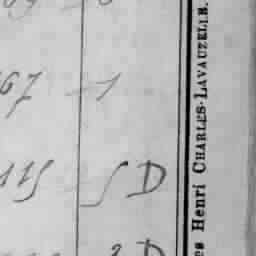 67 1
115 5 D
2 D
es Henri CHARLES-LAVAUZELLE.